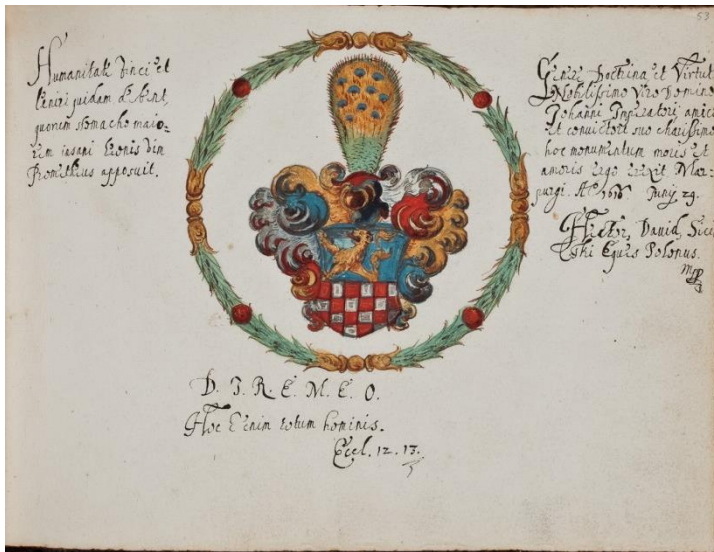 53
Humanitate vinci et
leniri quidam debent,
quorum stomacho maio=
rem insani Leonis vim
Prometheus apposuit.
Genere Doctrina et Virtute
Nobilissimo Viro Domino
Johanni Imperatorj amico
et convictori suo charissimo
hoc monumentum moris et
amoris ergo erexit Mar=
purgi. Aº 1616 Junij 29.
David
Eques Polonus.
mp
D. T. R. E. M. E. O.
Hoc Enim totum hominis.
Eccl. 12. 13.